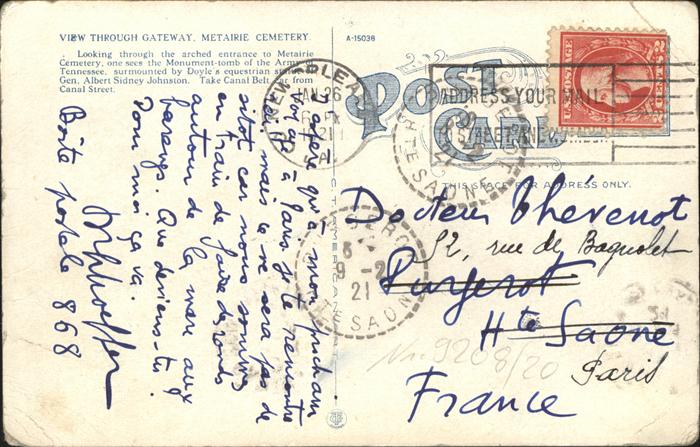 VIEW THROUGH GATEWAY, METAIRIE CEMETERY.
Looking through the arched entrance to Metairie
Cemetery, one sees the Monument-tomb of the Army
Tennessee, surmounted by Doyle's equestrian
Gen. Albert Sidney Johnston. Take Canal Belt car from
Canal Street.
A-15038
POST CARD
THIS SPACE FOR ADDRESS ONLY.
U.S. POSTAGE
NEW ORLEA
JAN 26
1921
LA.
ADDRESS YOUR MAIL
STREET AND
J'espère qu'à mon prochain
voyage à Paris je te rencontre
mais ce ne sera pas de
sitôt car nous sommes
en train de faire des ronds
autour de la mare aux
harengs. Que deviens-tu
Pour moi ça va.
Boîte postale 868
C.T. AMERICAN
9-2
21
HTE SAONE
Docteur Thévenot
52, rue de Bagnolet
Purgerot
Hte Saone
Paris
France
9208/20